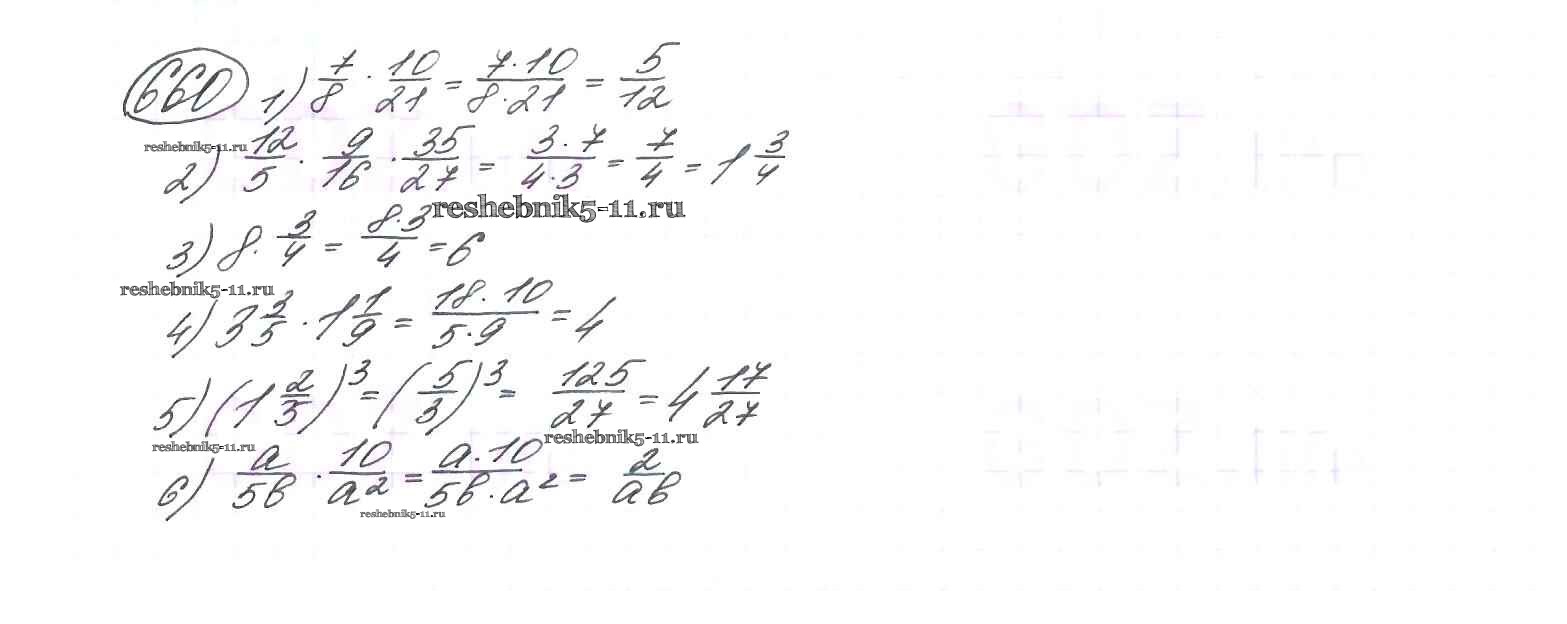 660 1) 7/8 · 10/21 = 7·10/8·21 = 5/12
reshebnik5-11.ru
2) 12/5 · 9/16 · 35/27 = 3·7/4·3 = 7/4 = 1 3/4
reshebnik5-11.ru
3) 8 · 3/4 = 8·3/4 = 6
reshebnik5-11.ru
4) 3 3/5 · 1 1/9 = 18·10/5·9 = 4
5) (1 2/3)³ = (5/3)³ = 125/27 = 4 17/27
reshebnik5-11.ru
reshebnik5-11.ru
6) a/5b · 10/a² = a·10/5b·a² = 2/ab
reshebnik5-11.ru